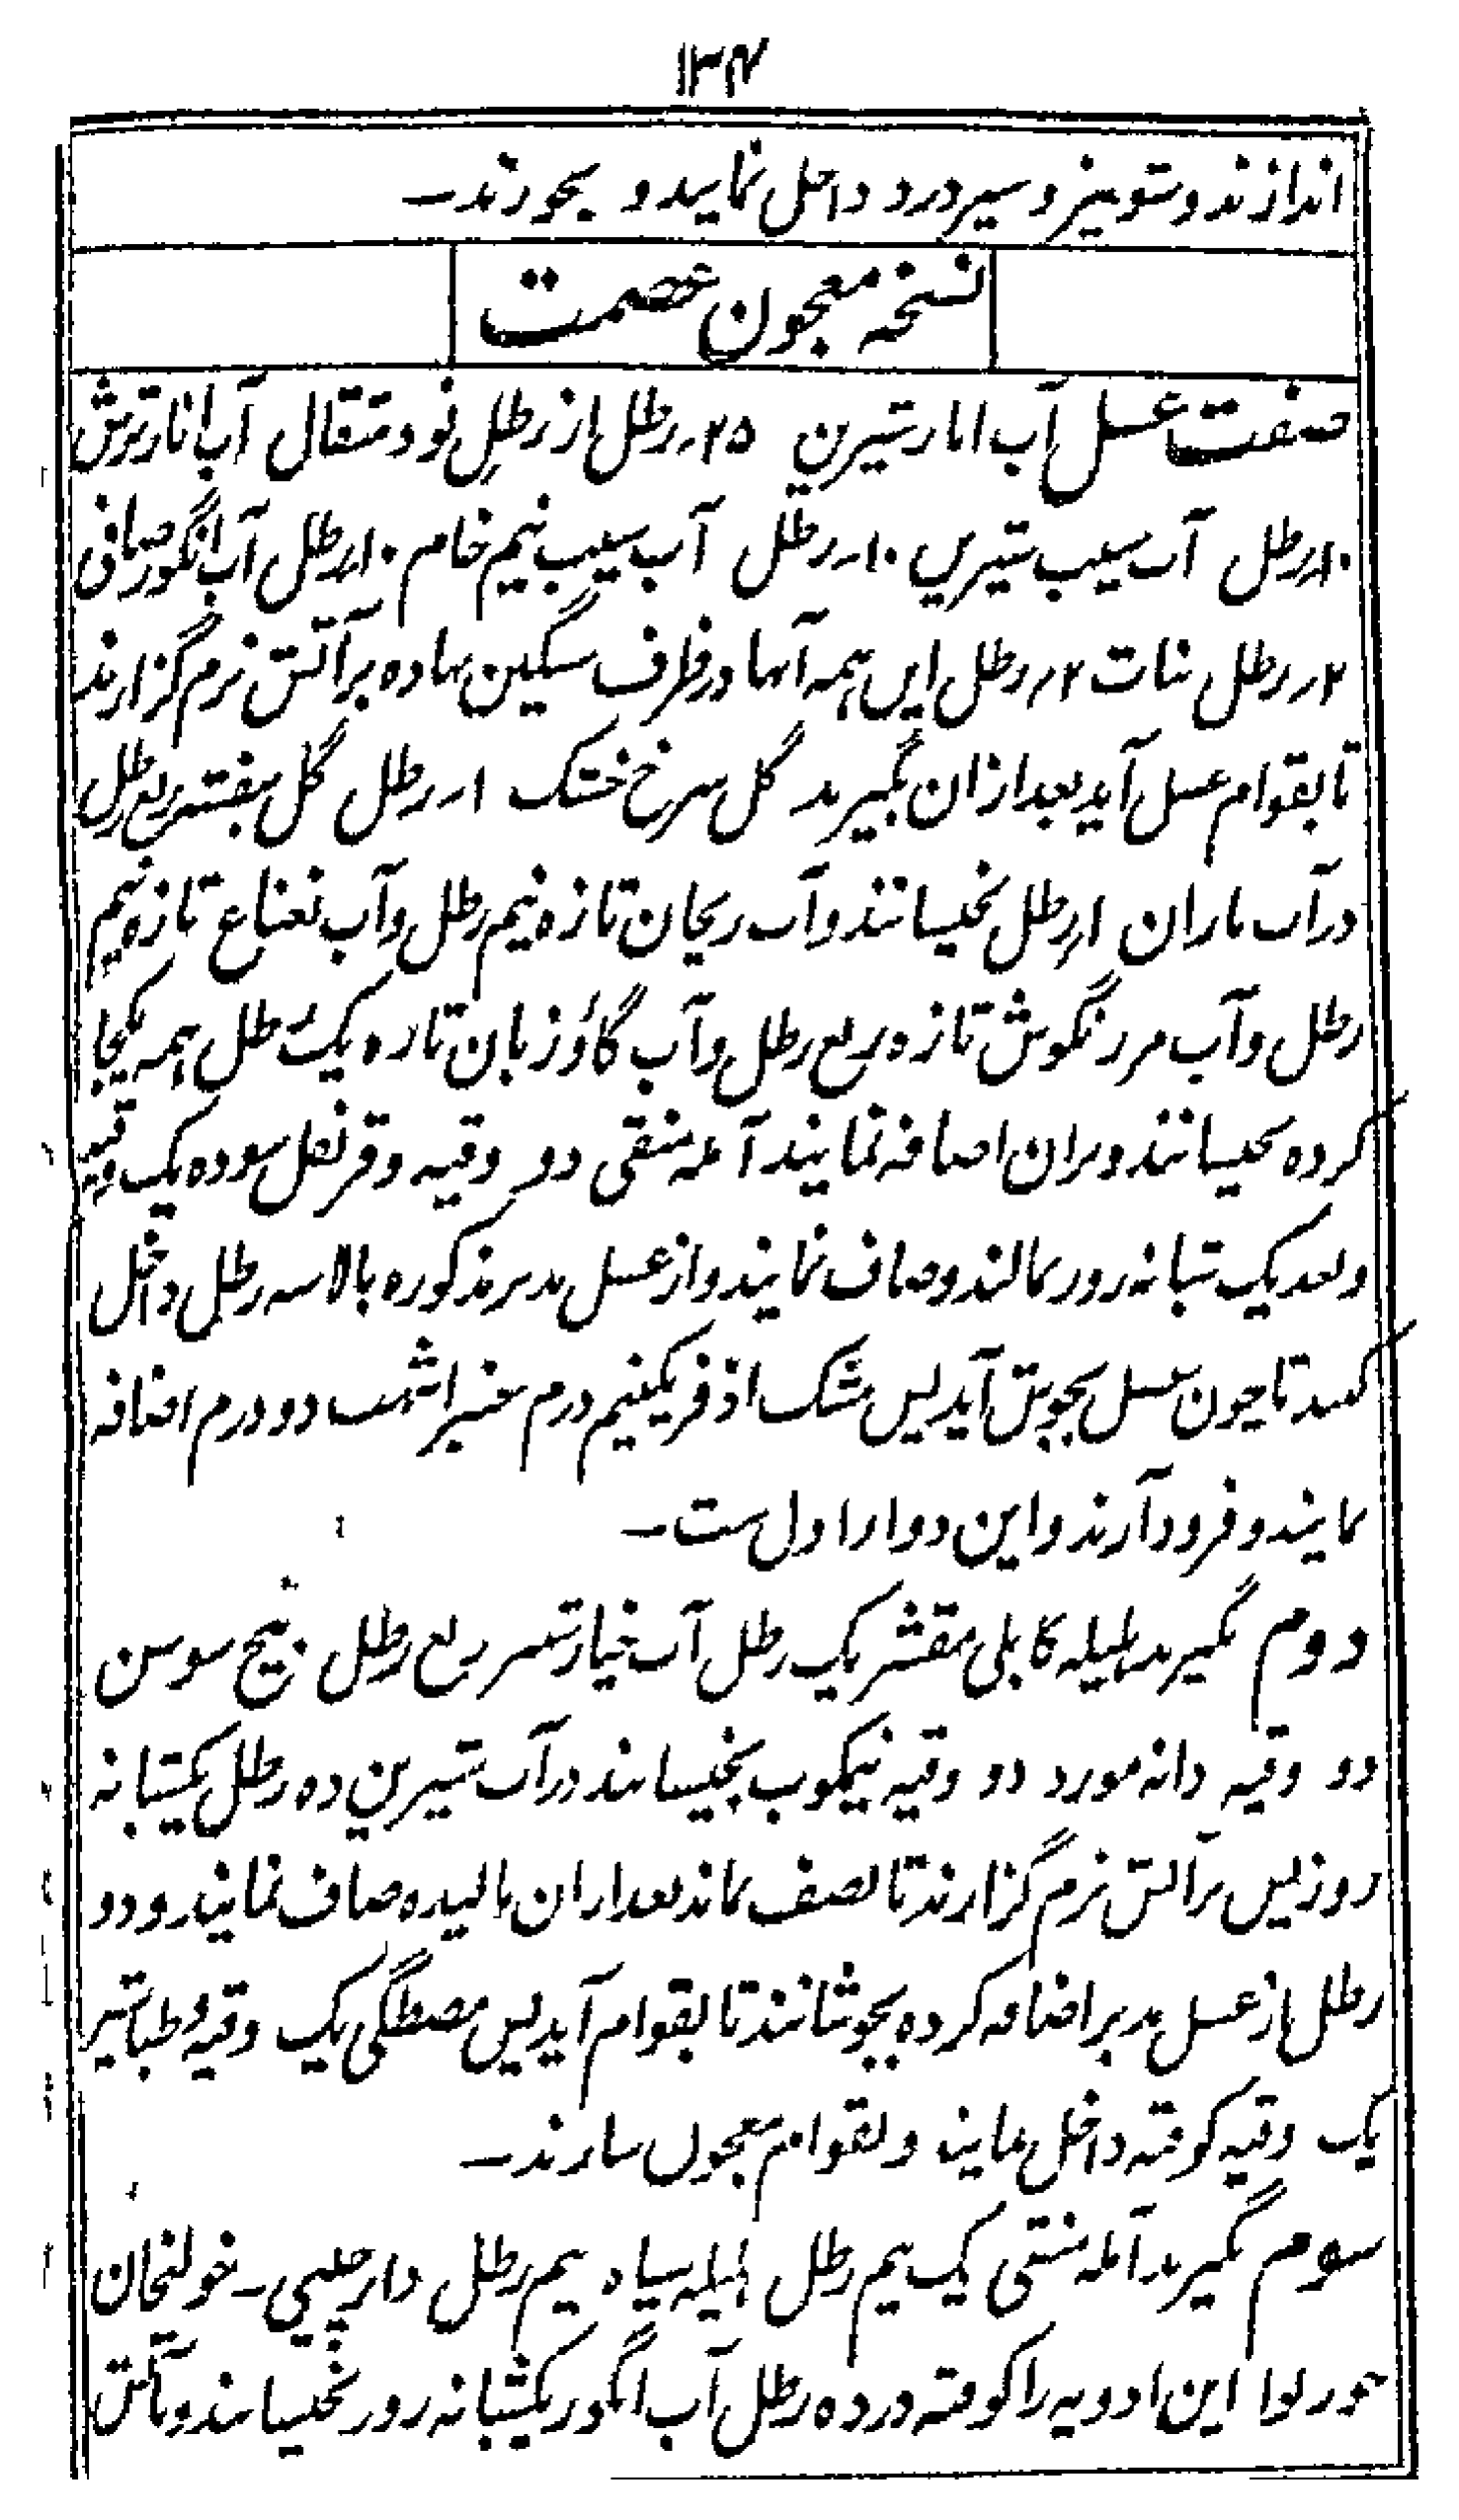 ۱۳۴
اندازند و شونیز و سیر درد داخل نمایند و بخورند۔
نسخہ معجون عصمت
صفت عسل آب انار شیرین ۲۵؍ رطل از رطلِ نود مثقال آب انار ترش
۱۰؍ رطل آب سیب شیریں ۱۰؍ رطل آب سیب نیم خام ۱۰؍ رطل آب انگور صافی
۲؍ رطل نبات ۲؍ رطل ایں ہمہ آبہا در ظرف سنگین نہادہ بر آتش نرم گزارند
تا بقوام عسل آید بعد ازان بگیرند گل سرخ خشک ۱؍ رطل گل بنفشہ ربع رطل
در آب باران ۱؍ رطل بخیسانند و آب ریحان تازہ نیم رطل و آب نعناع تازہ نیم
رطل و آب مرزنگوش تازہ ربع رطل و آب گاؤزبان تازہ یک رطل ہمہ یکجا
کردہ بخیسانند و بران اضافہ نمایند آملہ منقی دو وقیہ و قرنفل سودہ یک وقیہ
و بعد یک شبانہ روز بمالند و صاف نمایند و از عسل مدبر مذکورہ بالا سہ رطل داخل
کنند تا چون عسل بجوش آید پس مشک اذفر یکنیم درم عنبر اشہب دو درم اضافہ
نمایند و فرود آرند و این دوا را اول ست۔
دوم بگیرند ہلیلہ کابلی مقشر یک رطل آب خیارشنبر ربع رطل بیخ سوسن
دو وقیہ دانہ مورد دو وقیہ نیمکوب بخیسانند در آب شیرین دہ رطل یکشبانہ
روز پس بر آتش نرم گزارند تا نصف بماند بعد ازان مالیدہ صاف نمایند و دو
رطل از عسل مدبر اضافہ کردہ بجوشانند تا بقوام آید پس مصطگی یک وقیہ و طباشیر
یک وقیہ کوفتہ داخل نمایند و بقوام معجون سازند۔
سوم بگیرند آملہ منقی یک نیم رطل ہلیلہ سیاہ نیم رطل دارچینی۔ خولنجان
جوز بوا این ادویہ را کوفتہ در دہ رطل آب انگور یکشبانہ روز بخیسانند و بآتش